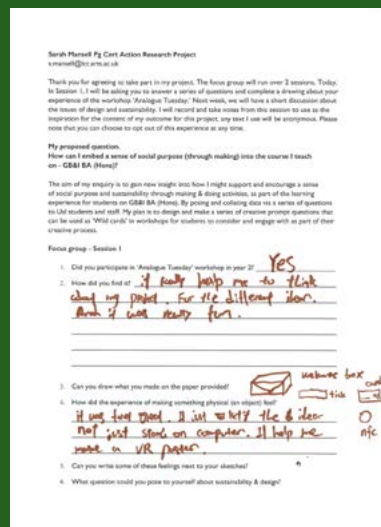 Sarah Mansell Pg Cert Action Research Project
s.mansell@lcc.arts.ac.uk
Thank you for agreeing to take part in my project. The focus group will run over 2 sessions. Today,
In Session 1, I will be asking you to answer a series of questions and complete a drawing about your
experience of the workshop 'Analogue Tuesday.' Next week, we will have a short discussion about
the issues of design and sustainability. I will record and take notes from this session to use as the
inspiration for the content of my outcome for this project, any text I use will be anonymous. Please
note that you can choose to opt out of this experience at any time.
My proposed question.
How can I embed a sense of social purpose (through making) into the course I teach
on - GB&I BA (Hons)?
The aim of my enquiry is to gain new insight into how I might support and encourage a sense
of social purpose and sustainability through making & doing activities, as part of the learning
experience for students on GB&I BA (Hons). By posing and collating data via a series of questions
to UAL students and staff. My plan is to design and make a series of creative prompt questions that
can be used as 'Wild cards' in workshops for students to consider and engage with as part of their
creative process.
Focus group - Session 1
1. Did you participate in 'Analogue Tuesday' workshop in year 2? Yes
2. How did you find it? it really help me to think
about my project. For the different idea.
And it was really fun.
3. Can you draw what you made on the paper provided?
box
4. How did the experience of making something physical (an object) feel?
it was feel good. I just the idea
not just on computer. It help me
make a VR
nfc
5. Can you write some of these feelings next to your sketches?
6. What question could you pose to yourself about sustainability & design?